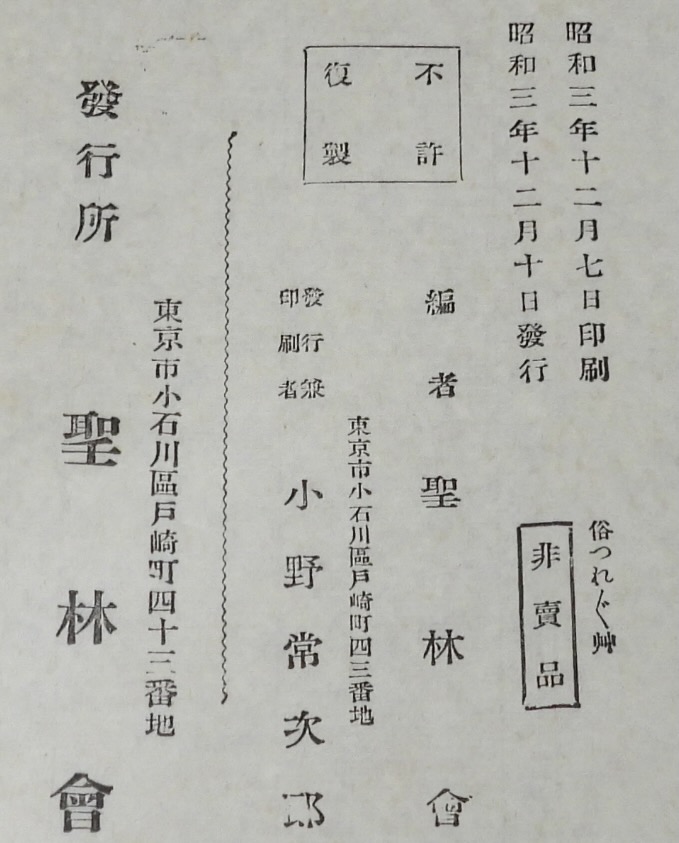 昭和三年十二月七日印刷
昭和三年十二月十日發行
俗つれ〴〵艸
非賣品
不許
復製
編者 聖林會
東京市小石川區戸崎町四三番地
發行兼
印刷者
小野常次郎
東京市小石川區戸崎町四十三番地
發行所 聖林會